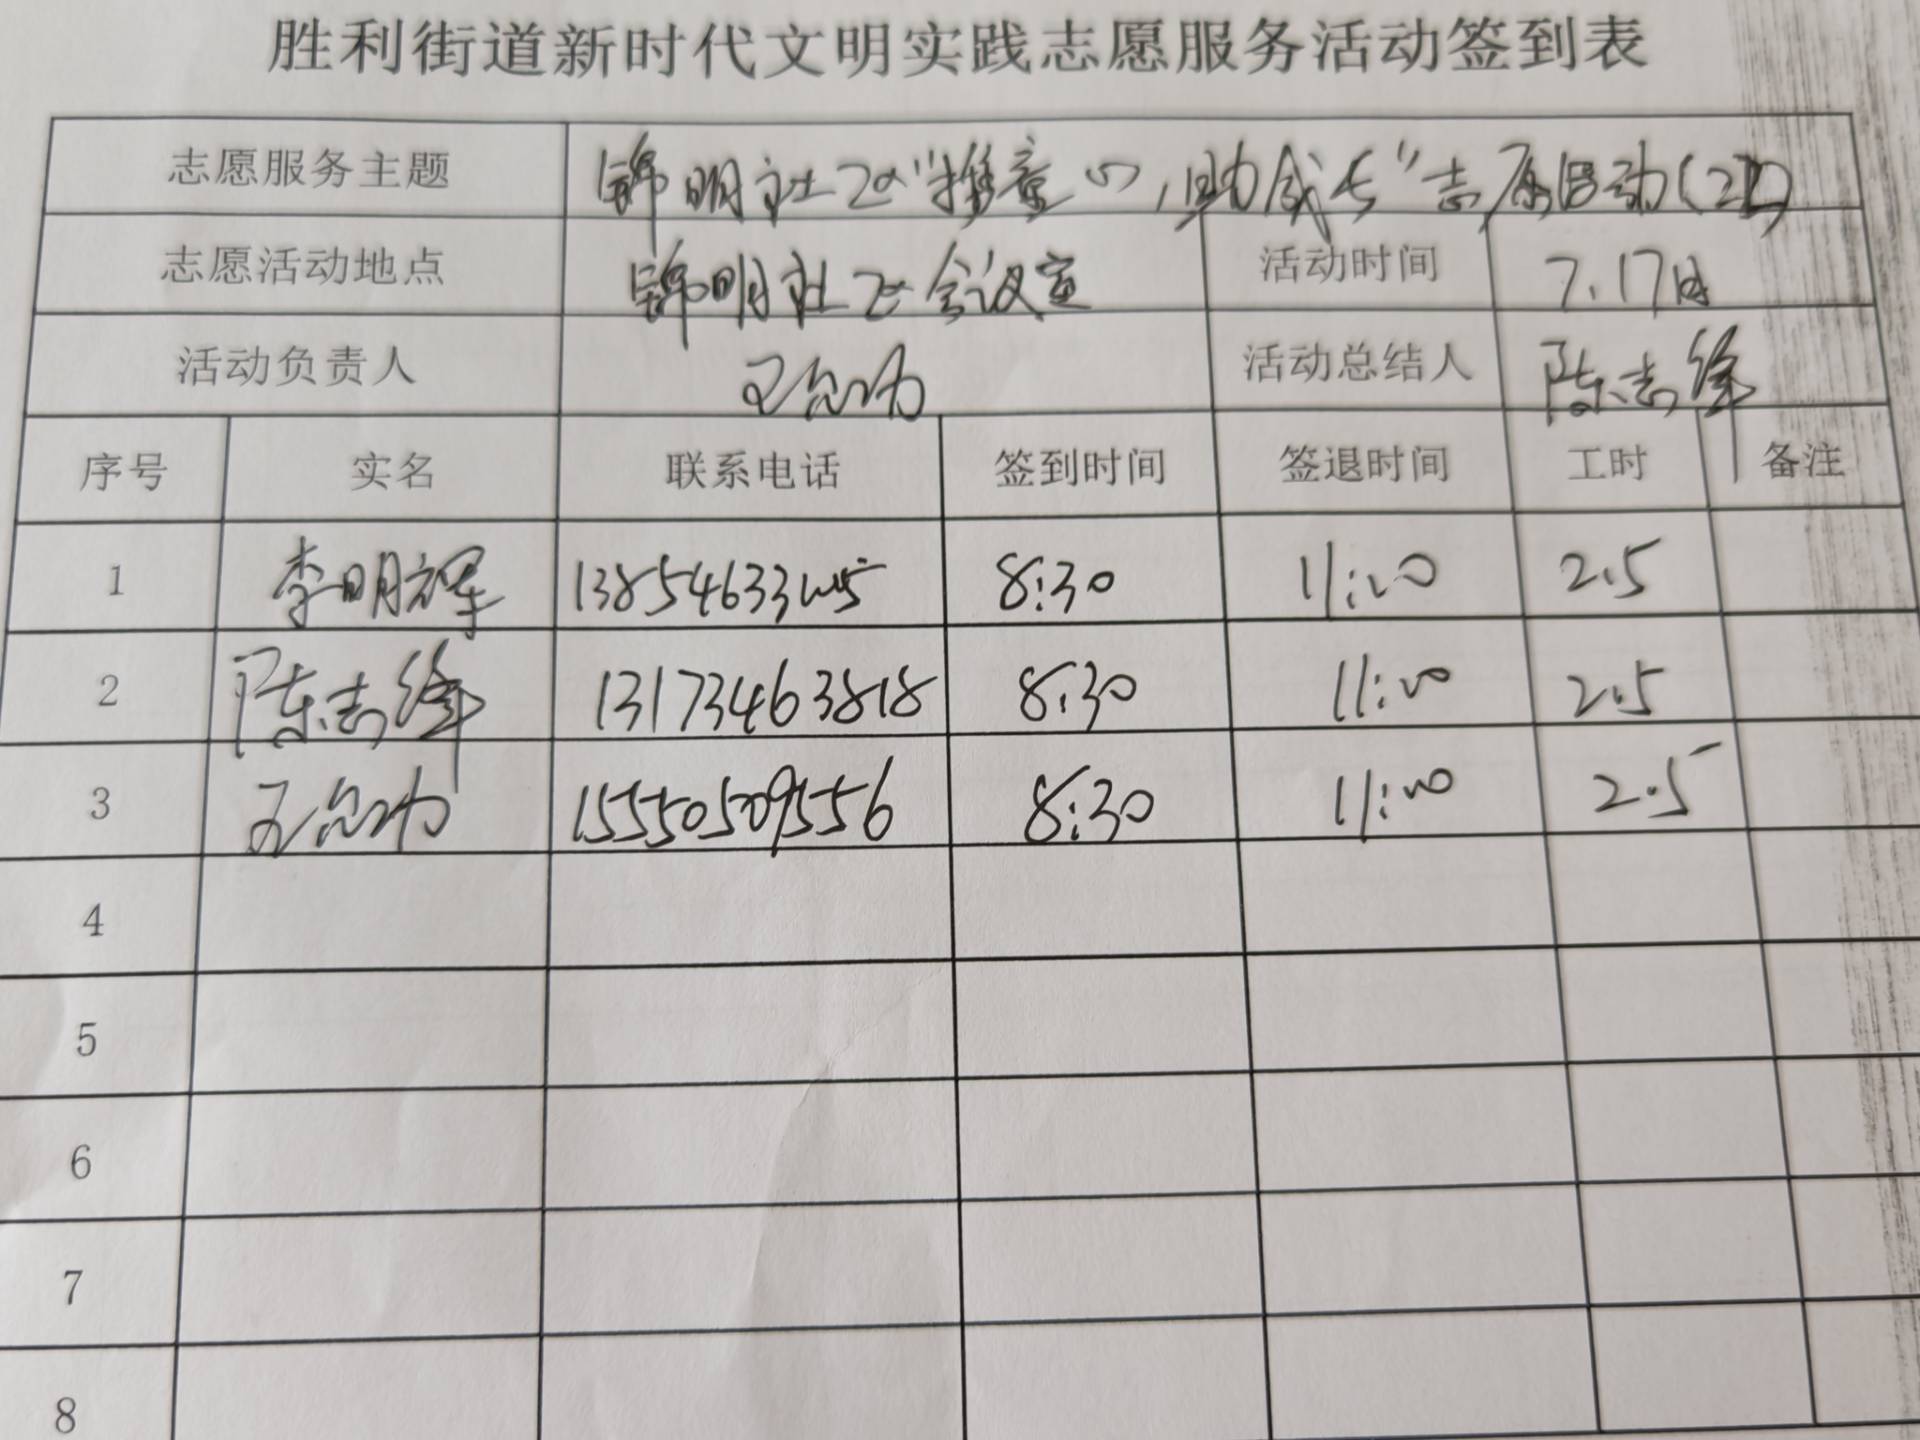 胜利街道新时代文明实践志愿服务活动签到表
志愿服务主题 锦明社区“携童心,助成长”志愿活动(22)
志愿活动地点 锦明社区会议室 活动时间 7.17日
活动负责人 活动总结人 陈志峰
序号 实名 联系电话 签到时间 签退时间 工时 备注
1 李明辉 13854633 8:30 11:00 2.5
2 陈志峰 13173463818 8:30 11:00 2.5
3 王 15550509556 8:30 11:00 2.5
4
5
6
7
8